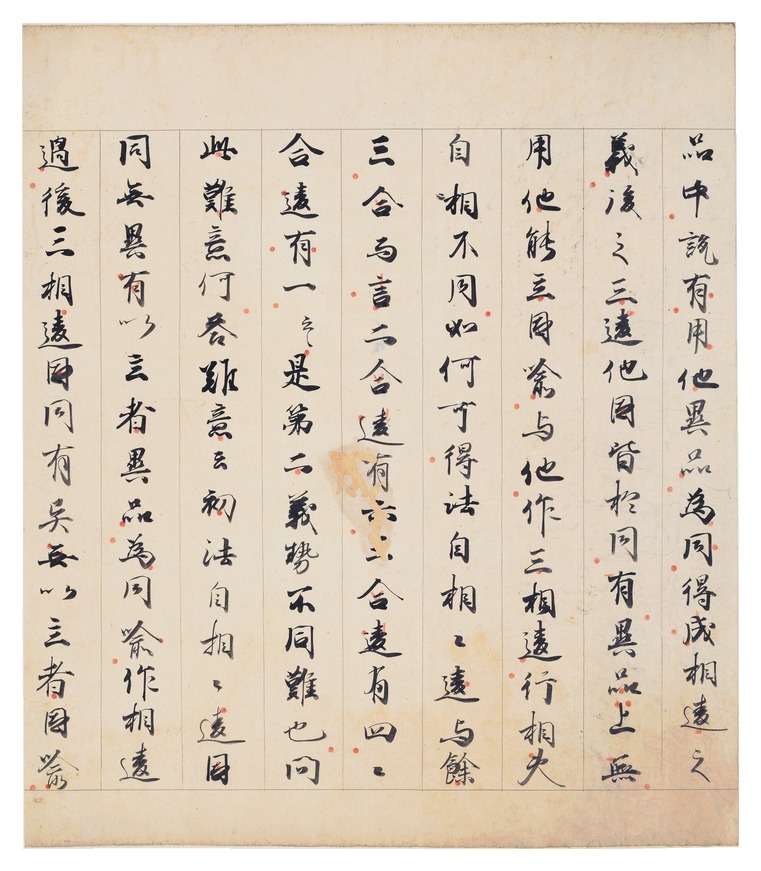 品中說有用他異品為同得成相違之
義後之三違他因皆於同有異品上無
用他能立因喻与他作三相違行相大
自相不同如何可得法自相々違与餘
三合而言二合違有六三合違有四々
合違有一之是第二義勢不同難也問
此難意何荅難意云初法自相々違因
同無異有以立者異品為同喻作相違
過後三相違因同有異無以立者因喻